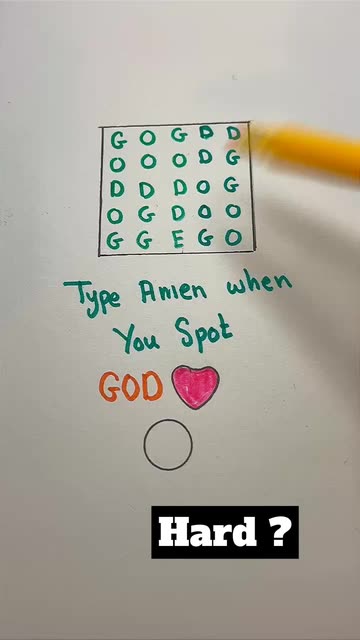 G O G D D
O O O D G
D D D O G
O G D O O
G G E G O
Type Amen when
You Spot
GOD
Hard ?